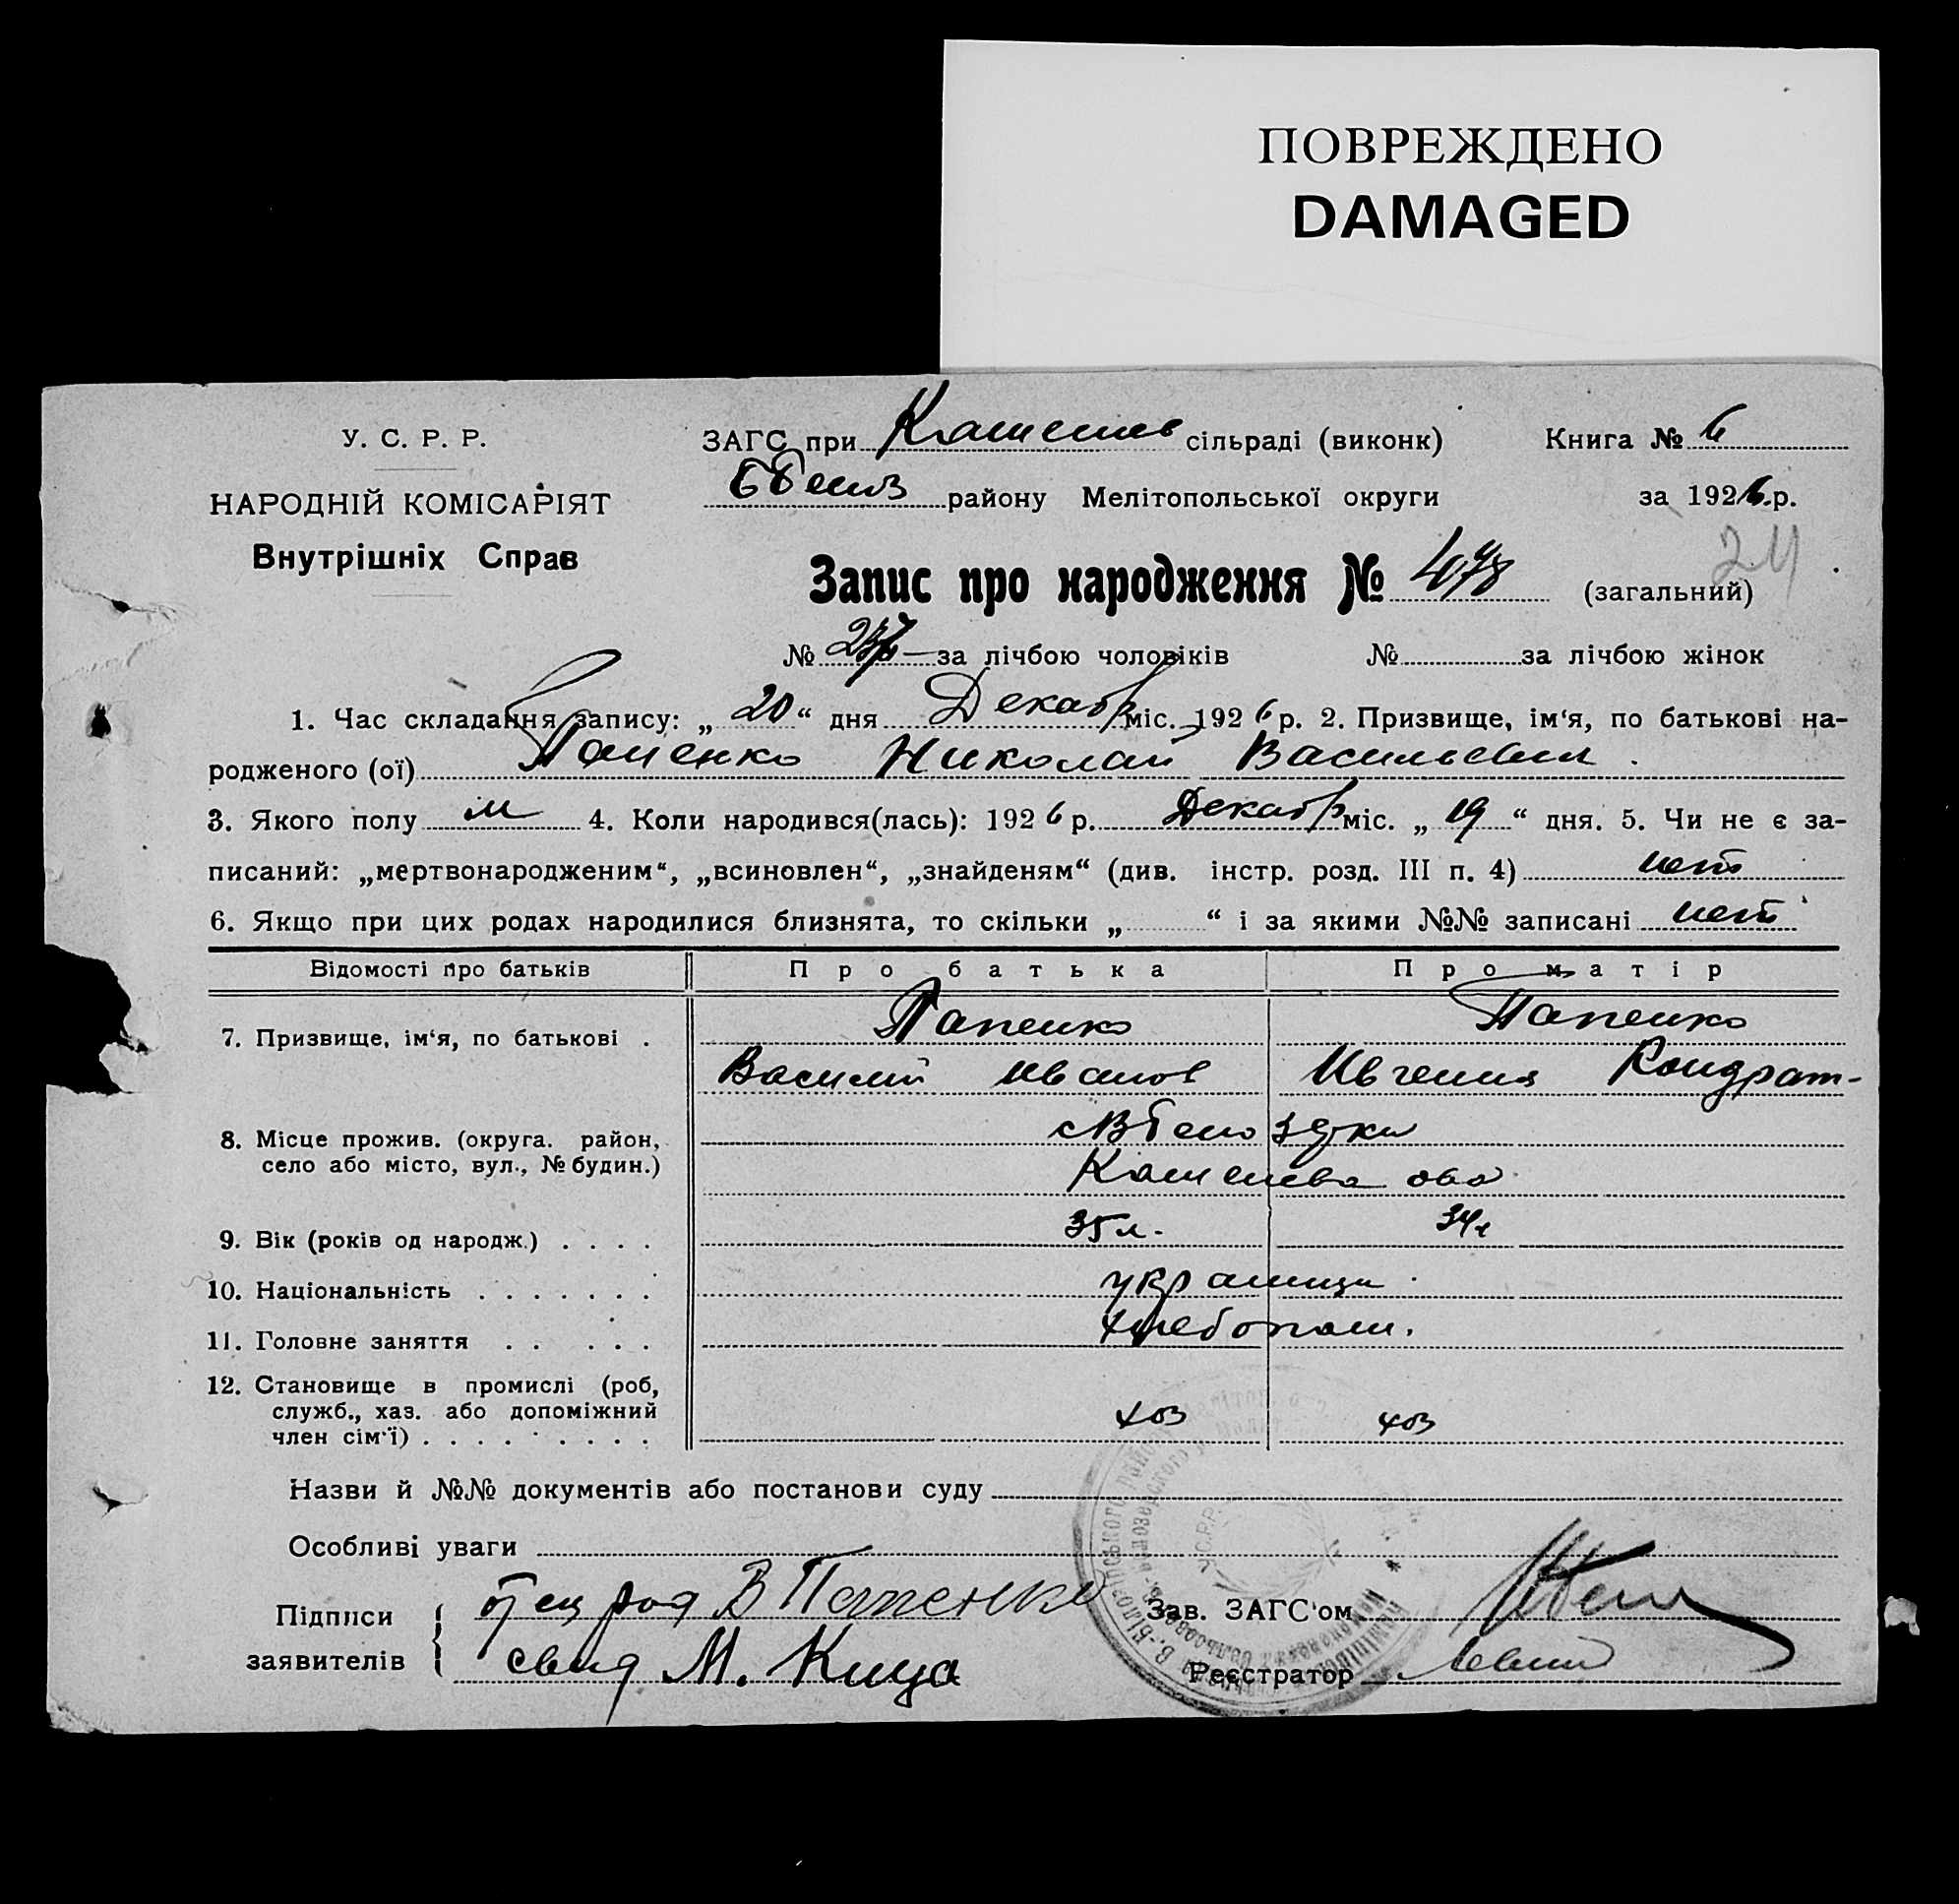 ПОВРЕЖДЕНО
DAMAGED
У. С. Р. Р.
НАРОДНІЙ КОМІСАРІЯТ
Внутрішніх Справ
ЗАГС при сільраді (виконк) Книга № 6
району Мелітопольської округи за 1926 р.
24
Запис про народження № 478 (загальний)
№ 237 за лічбою чоловіків № за лічбою жінок
1. Час складання запису: „ 20 “ дня Декабр міс. 1926 р. 2. Призвище, ім‘я, по батькові на-
родженого (ої) Папенко Николай Васильевич.
3. Якого полу м 4. Коли народився(лась): 1926 р. Декабр міс. „ 19 “ дня. 5. Чи не є за-
писаний: „мертвонародженим“, „всиновлен“, „знайденям“ (див. інстр. розд. III п. 4) нет
6. Якщо при цих родах народилися близнята, то скільки „ “ і за якими №№ записані нет
Відомості про батьків Про батька Про матір
7. Призвище, ім‘я, по батькові . Папенко Папенко
Василий Иванов Ивгения Кондрат-
8. Місце прожив. (округа. район,
село або місто, вул., № будин.)
9. Вік (років од народж.) . . . . 35 л. 34 л
10. Національність . . . . . . . украинци
11. Головне заняття . . . . . хлебопаш.
12. Становище в промислі (роб,
служб., хаз. або допоміжний
член сім‘ї) . . . . . . . . . хоз хоз
Назви й №№ документів або постанови суду
Особливі уваги
Підписи
заявителів
отец В Папенко
свид М. Куца
Зав. ЗАГС‘ом
Реєстратор
У.С.Р.Р.